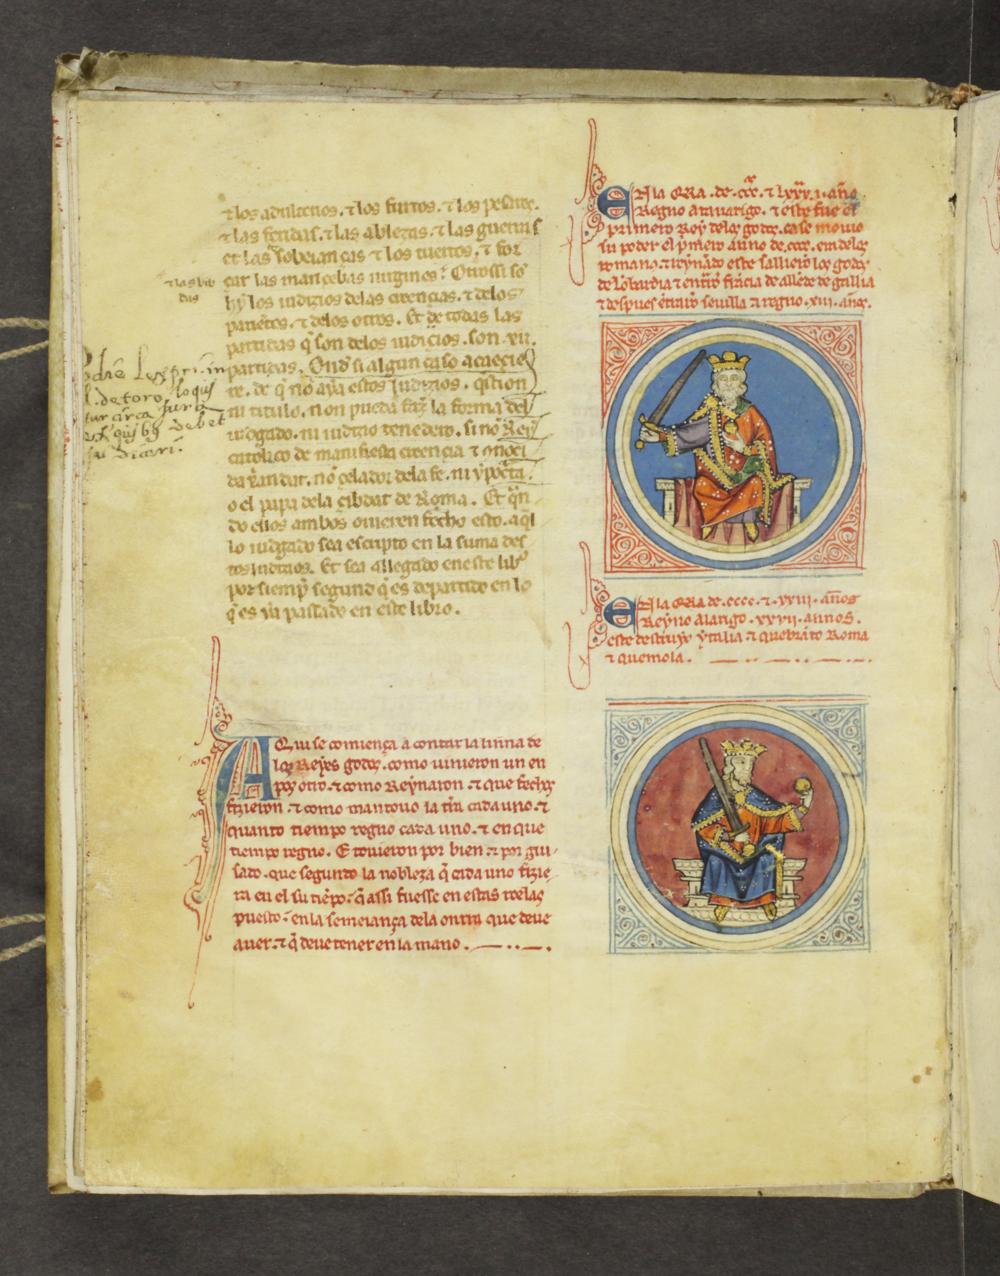 ⁊ los adulterios. ⁊ los furtos. ⁊ los pesares.
⁊ las feridas. ⁊ las ablezas. ⁊ las guerras
et las soberanças ⁊ los tuertos. ⁊ for
çar las mancebas uirgines. Otrossi so
hy los iudizios delas creencias. ⁊ delos
parientes. ⁊ delos otros. Et de todas las
partidas q̃ son delos iudicios. son .xii.
partizas. Onde si algun caso acaecie
re. de q̃ nõ aya estos iudizios. qistion
ni titulo. non pueda faz̃ la forma del
iudgado. ni iudizio tenedero. si nõ Rey
catolico de manifiesta creencia ⁊
nõ celador dela fe. ni
o el papa dela cibdat de Roma. Et q̃n
do ellos ambos ouieren fecho esto. aq̃l
lo iudgado sea escripto en la suma des
tos iudizios. Et sea allegado eneste lib̃
por siemp̃ segund q̃ es departido en lo
q̃ es ya passado en este libro.
⁊ las bib
das
de toro. loqͥ
circa iura
debet
AQui se comiença a contar la linna de
los Reyes godos. como uinieron un en
pos otro. ⁊ como Reynaron. ⁊ que fechos
fizieron. ⁊ como mantouo la tr̃a cada uno. ⁊
quanto tiempo regno cada uno. ⁊ en que
tiempo regno. E touieron por bien ⁊ por gui
sado. que segunto la nobleza q̃ cada uno fizie
ra en el su tiẽpo. q̃ assi fuesse en estas roelas
puesto. en la semeiança dela onrra que deue
auer. ⁊ q̃ deue tener en la mano.
EN la ERA .de .ccc. ⁊ lxxx.i. año
Regno Atanarigo. ⁊ este fue el
primero Rey delos godos. ca se mouio
su poder el p̃mero anno de .ccc. em delos
romano. ⁊ reynãdo este sallierõ los godos
de lõbardia ⁊ entrarõ frãcia de allẽde de gallia
⁊ despues entrarõ seuilla ⁊ regno .xiii. años.
EN la ERA de .cccc. ⁊ .xxiii. años
Reyno Alarigo .xxvii. annos.
este destruyo ytalia ⁊ quebrãto Roma
⁊ quemola.